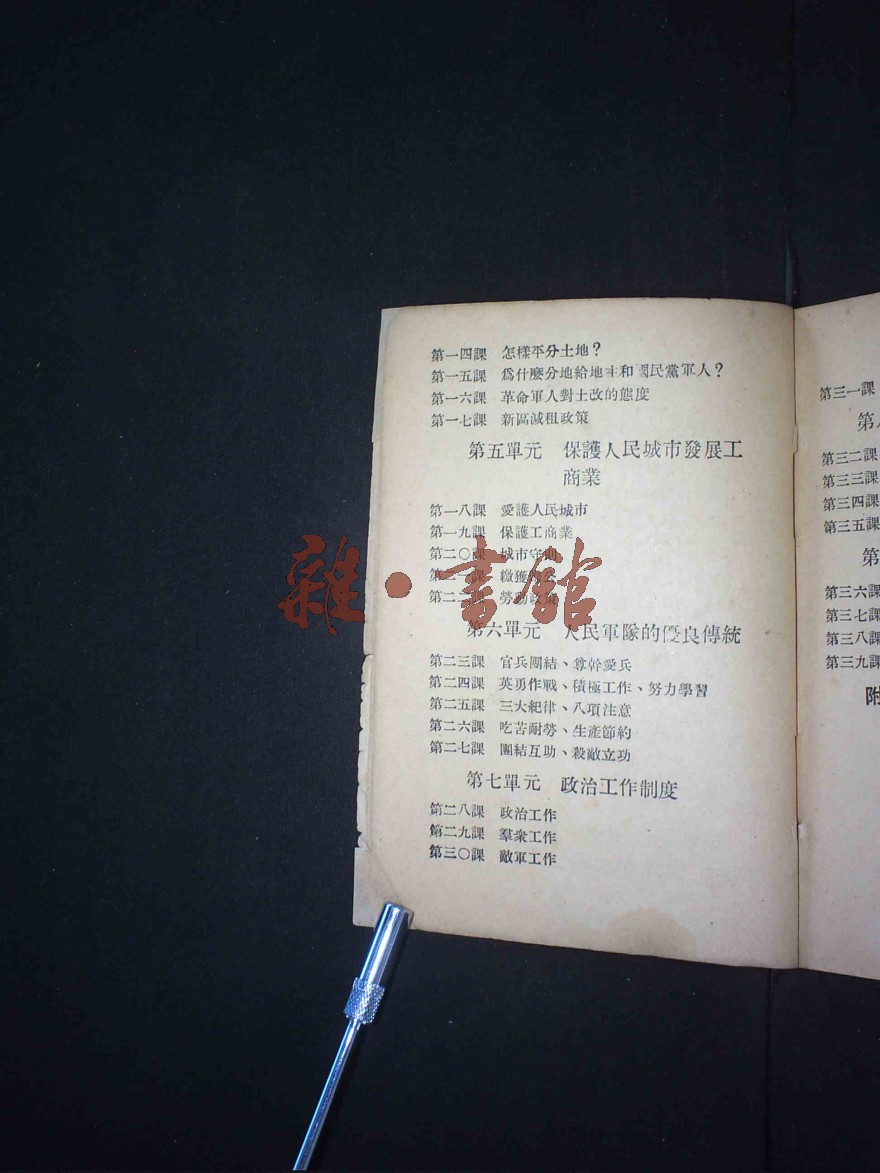 第一四課 怎樣平分土地？
第一五課 爲什麽分地給地主和國民黨軍人？
第一六課 革命軍人對土改的態度
第一七課 新區減租政策
第五單元 保護人民城市發展工
商業
第一八課 愛護人民城市
第一九課 保護工商業
第二〇課 城市守則
第二一課 繳獲
第二二課 勞動政策
第六單元 人民軍隊的優良傳統
第二三課 官兵團結、尊幹愛兵
第二四課 英勇作戰、積極工作、努力學習
第二五課 三大紀律、八項注意
第二六課 吃苦耐勞、生產節約
第二七課 團結互助、殺敵立功
第七單元 政治工作制度
第二八課 政治工作
第二九課 羣衆工作
第三〇課 敵軍工作
雜·書館
第三一課
第
第三二課
第三三課
第三四課
第三五課
第
第三六課
第三七課
第三八課
第三九課
附